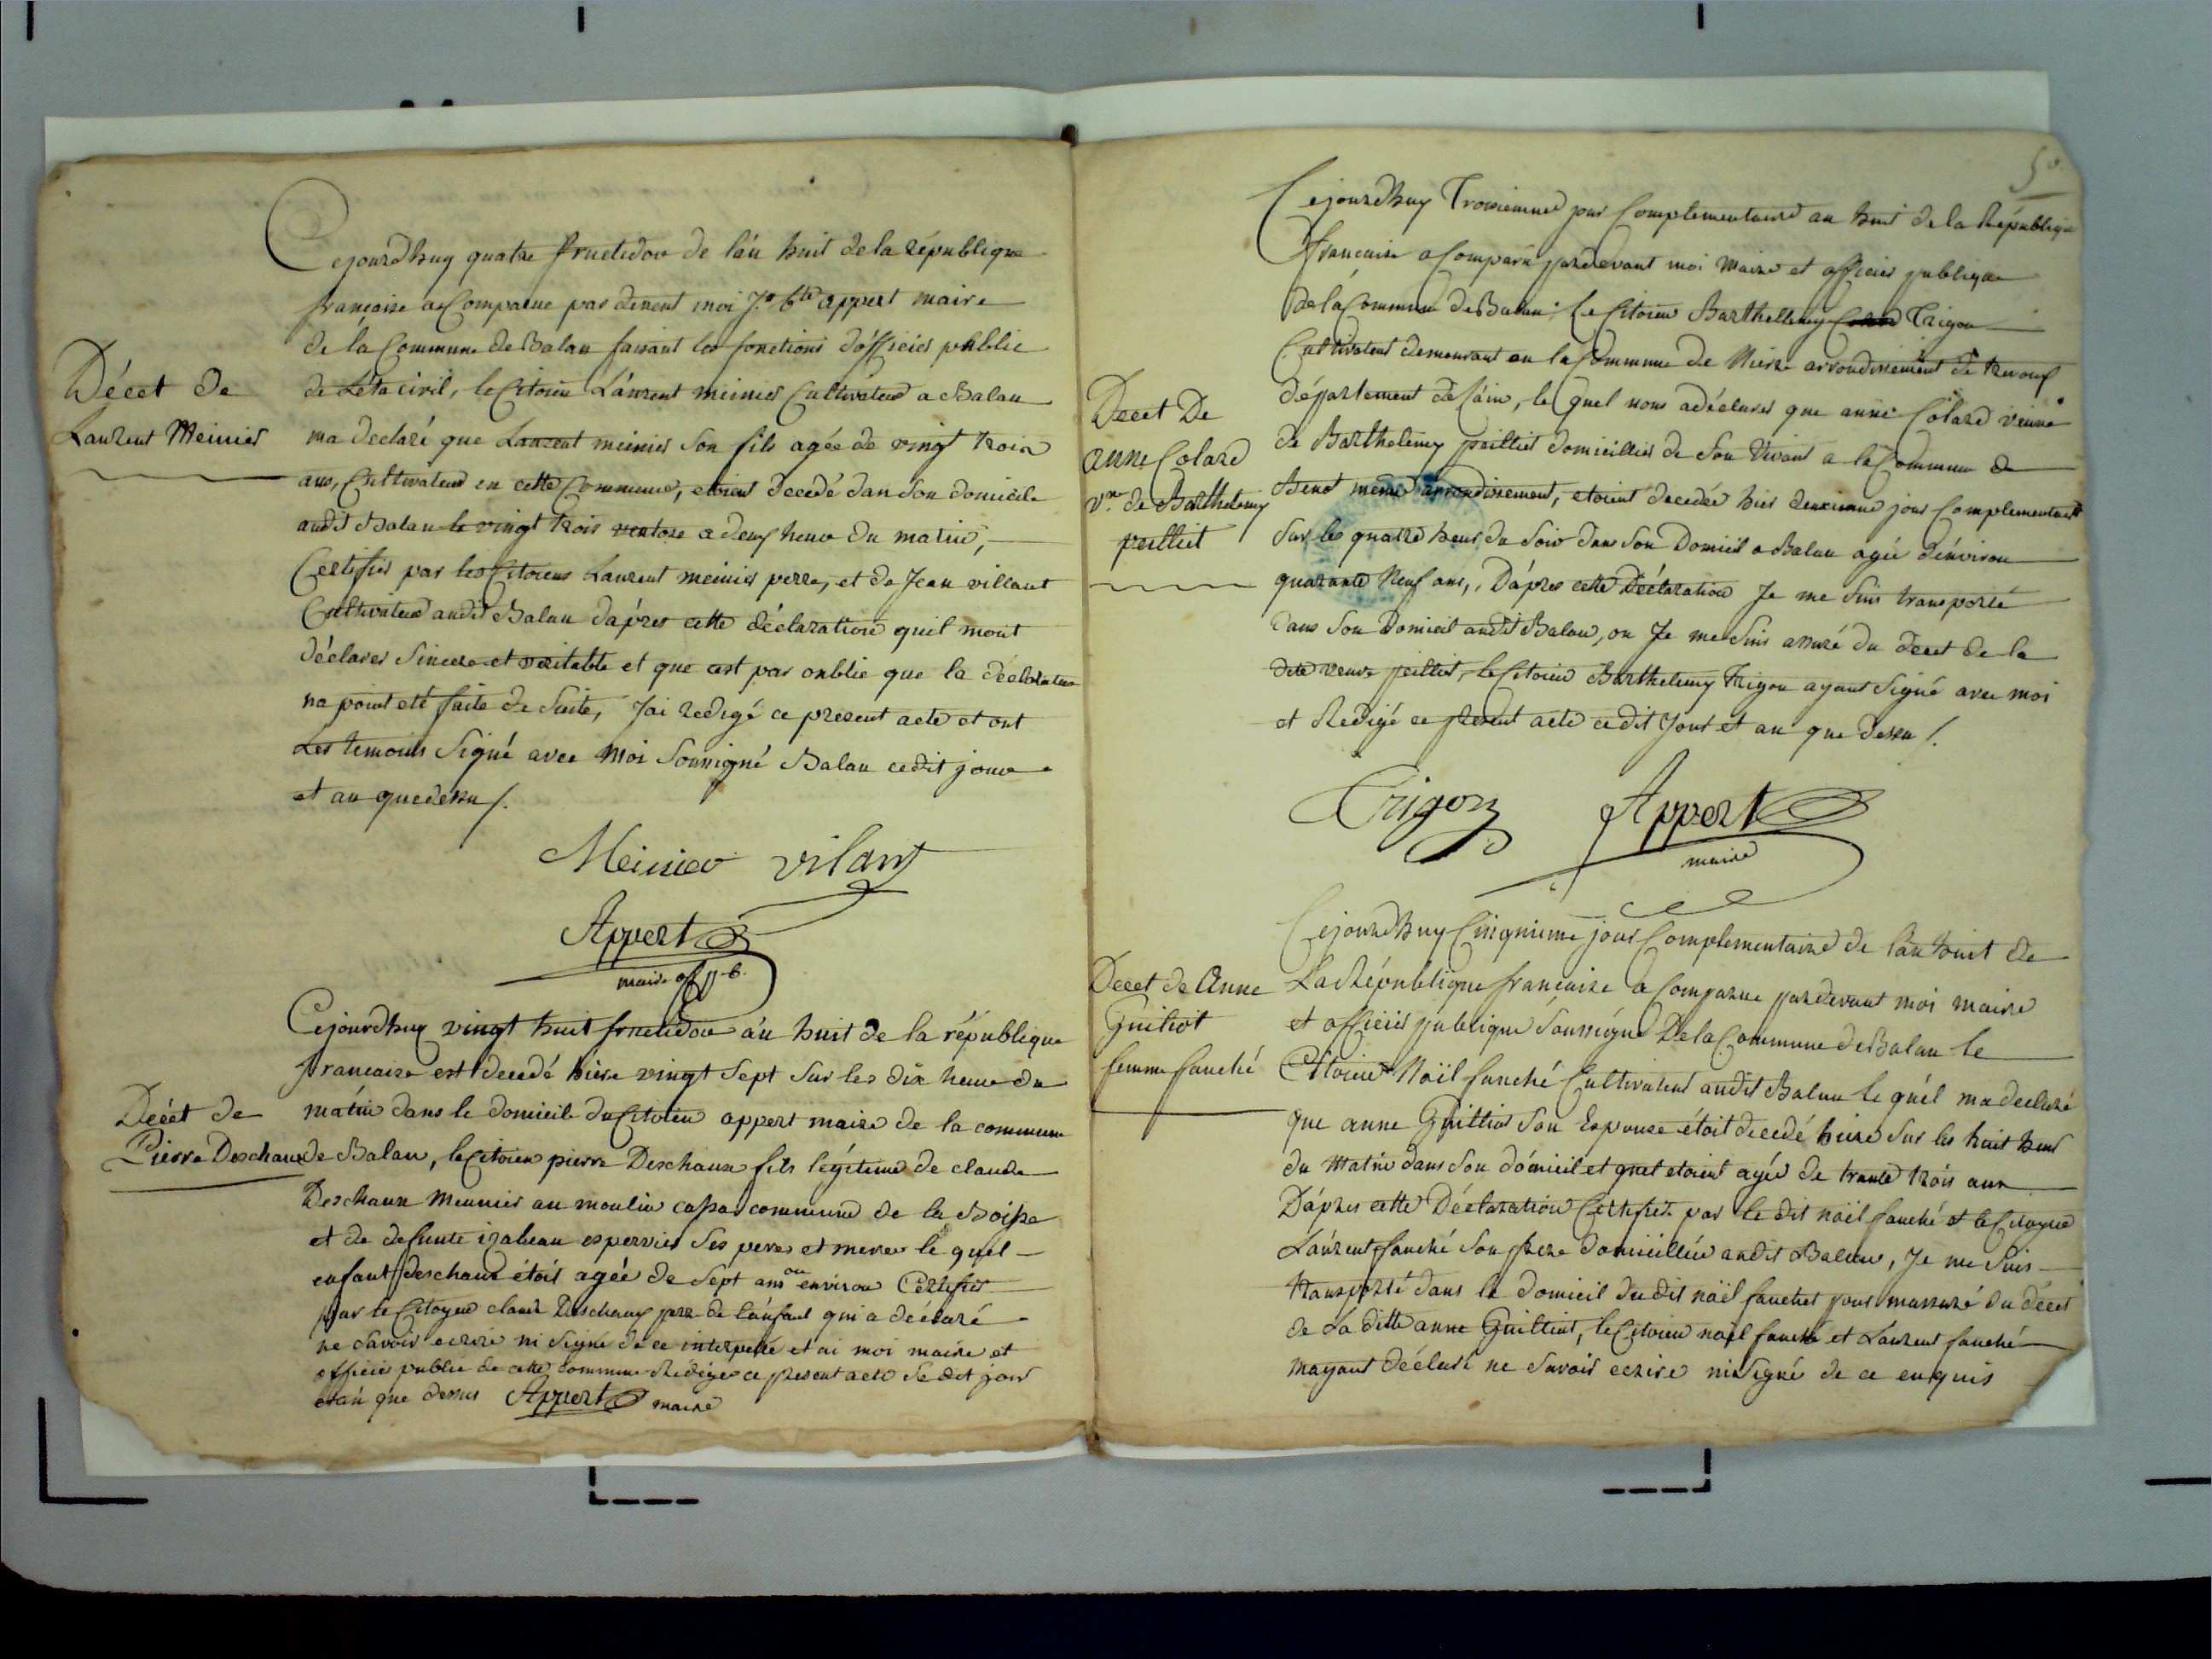 Cejourdhuy quatre fructidor de l'an huit de la république
française a Comparue par devent moi Jn bte appert maire
de la Commune de Balan faisant les fonctions d'officier public
de L'éta civil, le Citoien Laurent meinier Cultivateur a Balan
ma declaré que Laurent meinier son fils agée de vingt trois
ans, Cultivateur en cette Commune, etoient decedé dan son domicile
audit Balan le vingt trois ventose a deux heure du matin,
Certifier par les Citoiens Laurent meinier perre, et de Jean villant
Cultivateur audit Balan d'aprés cette déclaration quil mont
déclarer sincere et veritable et que cest par oublie que la déclaration
na point eté faite de suite, J'ai redigé ce present acte et ont
Les temoins signé avec moi soussigné Balan cedit jour
et an quedessu /.
Décet de
Laurent Meinier
Meinier vilant
Appert
maire off p b.
Cejourdhuy vingt huit fructidor an huit de la république
francaise est decedé hiere vingt sept sur les dix heure du
matin dans le domicile du Citoien appert maire de la commune
de Balan, le citoien pierre Deschaux fils legitime de claude
Deschaux Meunier au moulin cassa commune de la Boisse
et de defunte izabeau espervier ses peres et meres le quel
enfant deschaux étoit agée de sept ans ou environ Certifier
par le Citoyen claude Deschaux pere de l'enfant qui a déclaré
ne savoir ecrire ni signé de ce interpellé et ai moi maire et
officier public de cette commune Rédiger ce present acte Se dit jour
et an que dessus Appert maire
Décet de
Pierre Deschaux
50
Cejourdhuy Troisiemme jour Complementaire an huit de la République
française a Comparu pardevant moi maire et officier publique
de la Commune de Balan le Citoien Barthellemy Trigon
Cultivateur demeurant en la Commune de Niere arrondissement de trevouf
département de l'ain, le quel nous a déclarer que anne Colard veuve
de Barthelemy peilliet domicillier de Son Vivant a la Commune de
Benot meme arrondissement, etoient decedée hier deuxieme jour Complementaire
sur les quatre heur du Soir dans Son Domicil a Balan agée d'environ
quarante Neuf ans,, D'aprez cette Déclaration Je me suis transporté
dans son Domicil audit Balan, ou Je me suis assuré du decet de la
dite veuve peilliet, le Citoien Barthelemy Trigon ayant signé avec moi
et Redigé ce present acte cedit Jour et an que dessu /.
Decet De
anne Colard
ve. de Barthelemy
peilliet
Trigon Appert
maire
Cejourdhuy Cinquieme jour Complementaire de l'an huit de
La République française a Comparue pardevant moi maire
et officier publique soussigné De la Commune de Balan le
Citoien Noïl fauché Cultivateur audit Balan le quel ma declaré
que anne Guilliot son Espouse étoit decedé hiere sur les huit heur
du matin dans son domicil et quel etoient agée de trante trois ans
D'aprez cette Déclaration Certifiez par le dit noïl fauché et le Citoyen
Laurent fauché son frere domicillier audit Balan, Je me suis
transporté dans le domicil du dit noïl fauchet pour massuré du décet
de La ditte anne Guilliot, le Citoien noïl fauché et Laurent fauché
mayant déclaré ne savoir ecrire ni signé de ce enquis
Decet de Anne
Guiliot
femme fauché